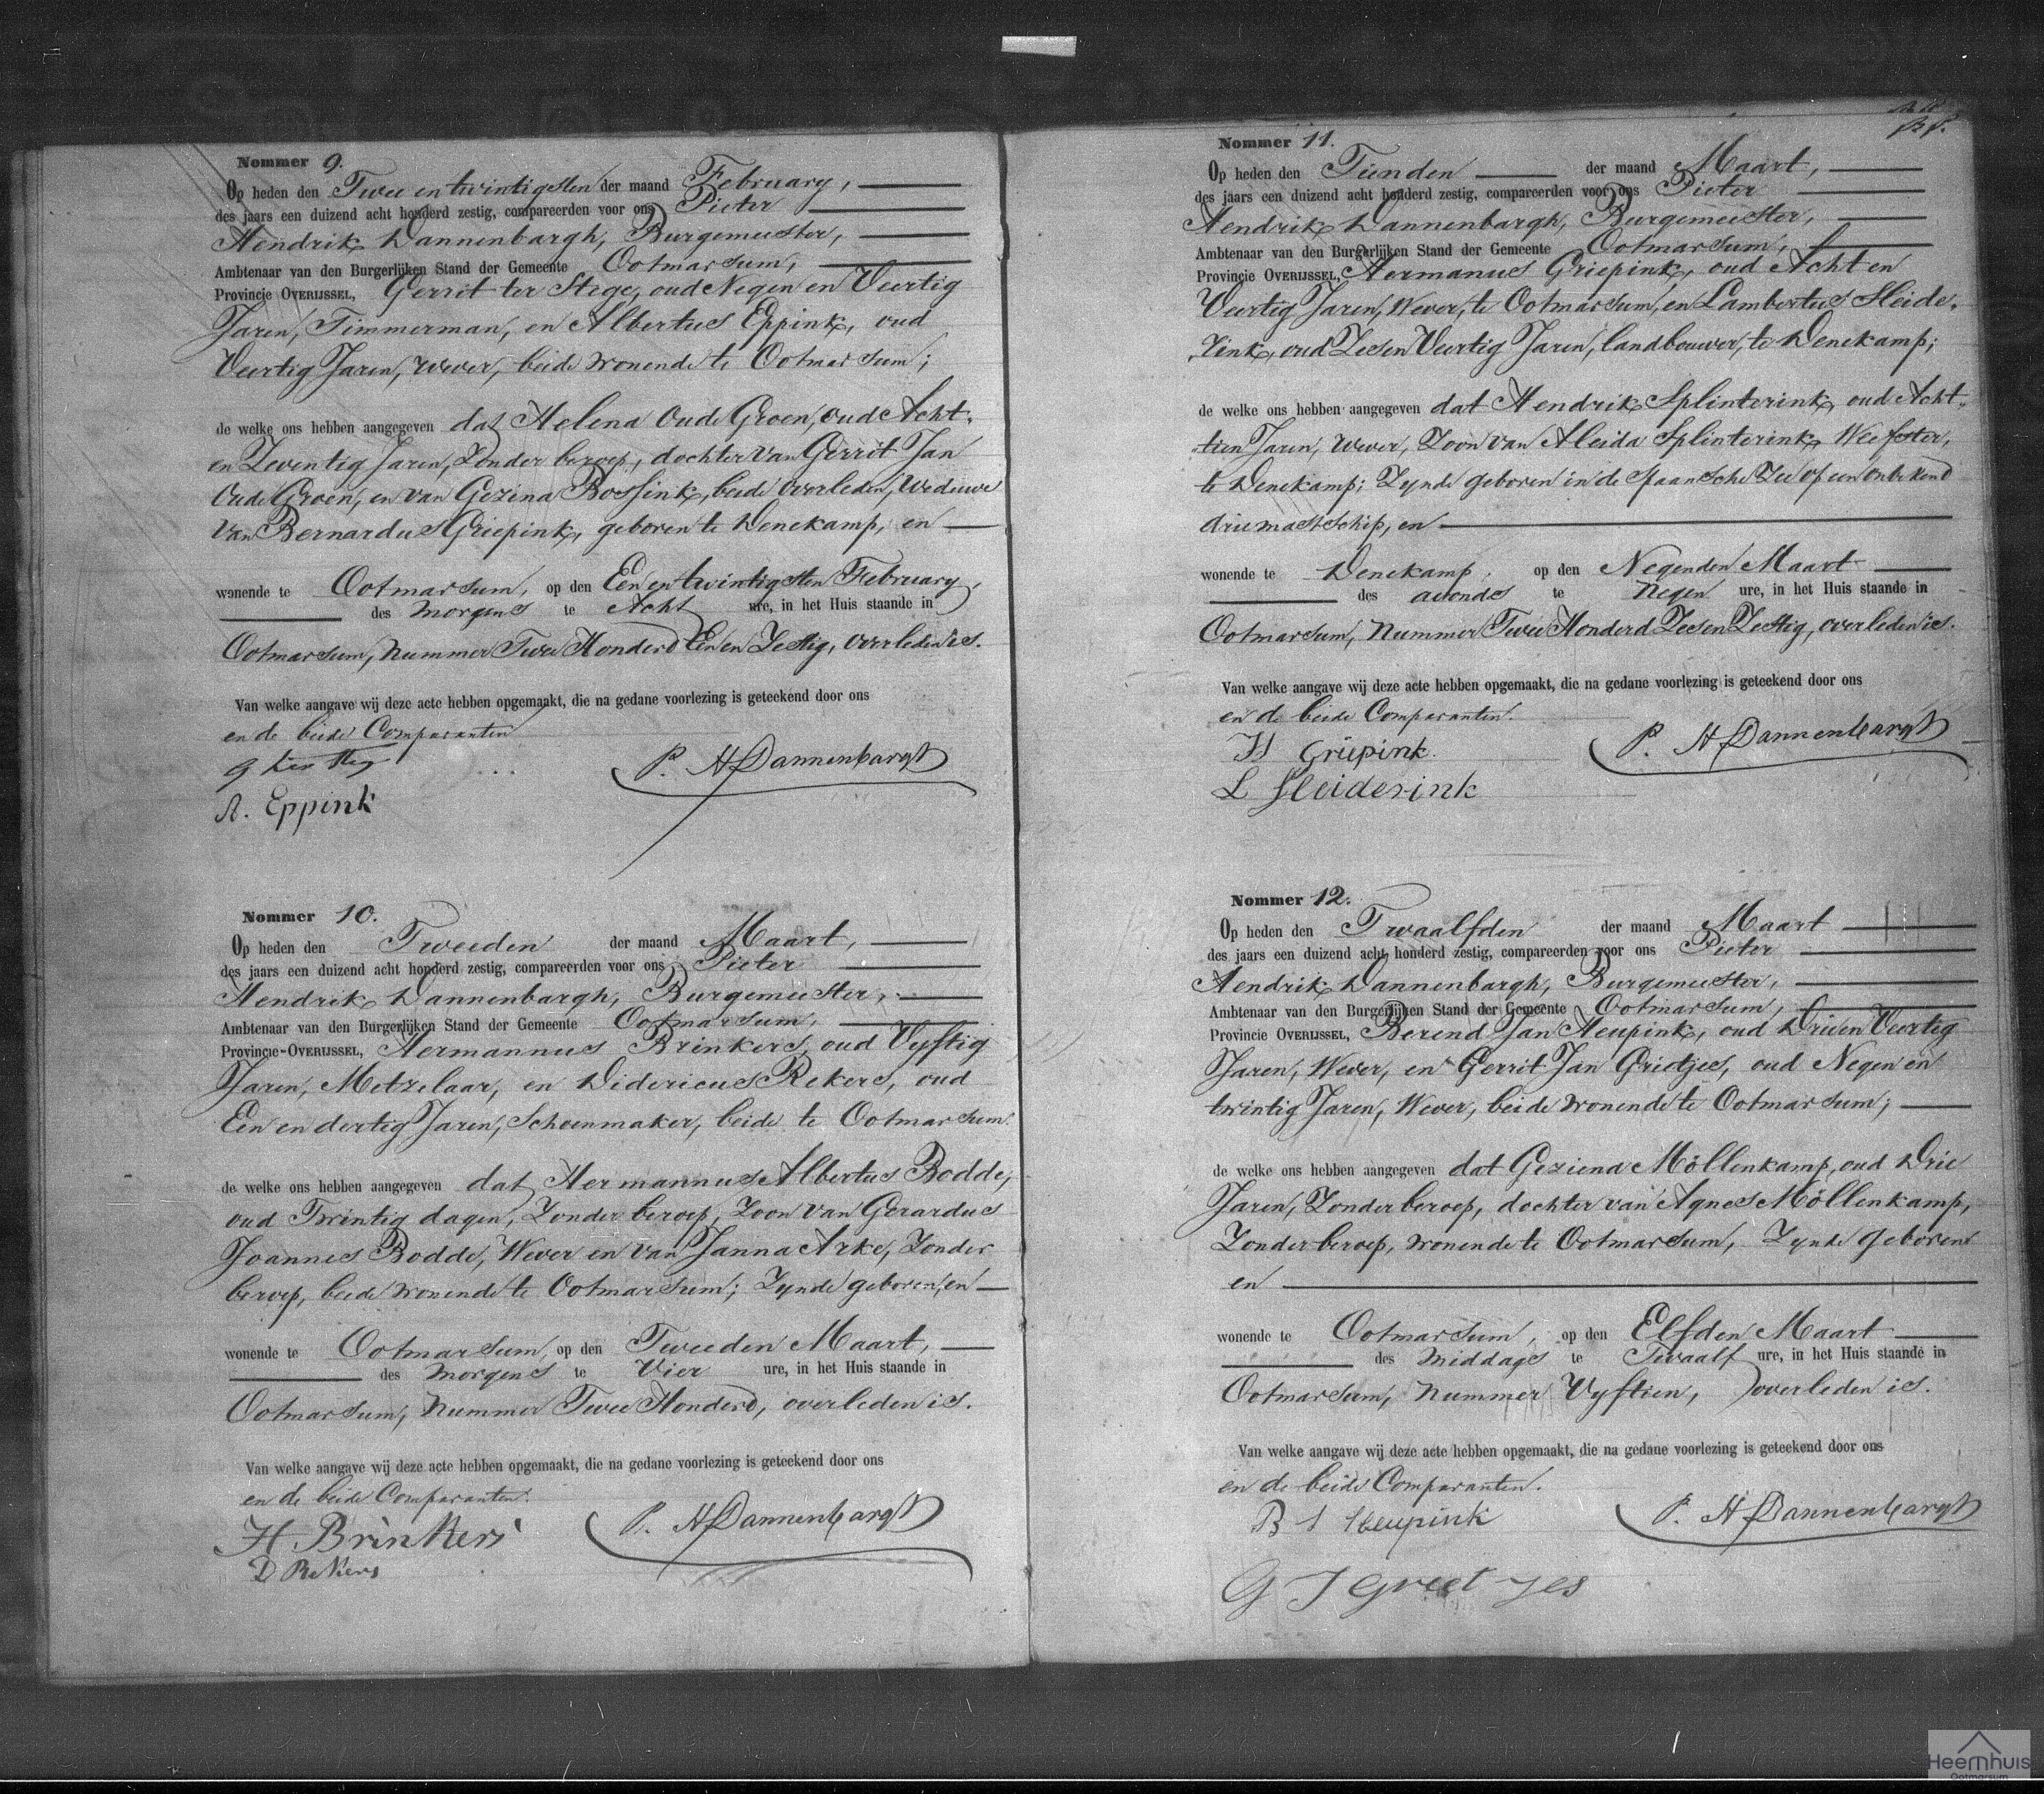 Nommer 9.
Op heden den Twee en twintigsten der maand February,
des jaars een duizend acht honderd zestig, compareerden voor ons Pieter
Hendrik Dannenbargh, Burgemeester,
Ambtenaar van den Burgerlijken Stand der Gemeente Ootmarsum,
Provincie OVERIJSSEL, Gerrit ter Stege, oud Negen en Veertig
Jaren, Timmerman, en Albertus Eppink, oud
Veertig Jaren, wever, beide wonende te Ootmarsum;
de welke ons hebben aangegeven dat Helena Oude Groen, oud Acht-
en Zeventig Jaren, Zonder beroep, dochter van Gerrit Jan
Oude Groen, en van Gezina Bossink, beide overleden, Weduwe
van Bernardus Griepink, geboren te Denekamp, en
wonende te Ootmarsum, op den Een en twintigsten February,
des morgens te Acht ure, in het Huis staande in
Ootmarsum, nummer Twee Honderd Een en Zestig, overleden is.
Van welke aangave wij deze acte hebben opgemaakt, die na gedane voorlezing is geteekend door ons
en de beide Comparanten
G ter Steg
P. H Dannenbargh
A. Eppink
Nommer 10.
Op heden den Tweeden der maand Maart,
des jaars een duizend acht honderd zestig, compareerden voor ons Pieter
Hendrik Dannenbargh, Burgemeester,
Ambtenaar van den Burgerlijken Stand der Gemeente Ootmarsum,
Provincie-OVERIJSSEL, Hermannus Brinkers, oud Vyftig
Jaren, Metzelaar, en Didericus Rekers, oud
Een en dertig Jaren, Schoenmaker, beide te Ootmarsum
de welke ons hebben aangegeven dat Hermannus Albertus Bodde,
oud Twintig dagen, Zonder beroep, Zoon van Gerardus
Joannes Bodde, Wever en van Janna Arke, Zonder
beroep, beide wonende te Ootmarsum; Zynde geboren, en
wonende te Ootmarsum, op den Tweeden Maart,
des morgens te Vier ure, in het Huis staande in
Ootmarsum, nummer Twee Honderd, overleden is.
Van welke aangave wij deze acte hebben opgemaakt, die na gedane voorlezing is geteekend door ons
en de beide Comparanten.
H Brinkers
P. H Dannenbargh
D Rekers
Nommer 11.
Op heden den Tienden der maand Maart,
des jaars een duizend acht honderd zestig, compareerden voor ons Pieter
Hendrik Dannenbargh, Burgemeester,
Ambtenaar van den Burgerlijken Stand der Gemeente Ootmarsum,
Provincie OVERIJSSEL, Hermanus Griepink, oud Acht en
Veertig Jaren, Wever, te Ootmarsum, en Lambertus Heide-
rink, oud Zes en Veertig Jaren, landbouwer, te Denekamp;
de welke ons hebben aangegeven dat Hendrik Splinterink, oud Acht-
tien Jaren, wever, Zoon van Aleida Splinterink, Weefster,
te Denekamp; Zynde geboren in de Spaansche Zee op een onbekend
driemastschip, en
wonende te Denekamp, op den Negenden Maart
des avonds te Negen ure, in het Huis staande in
Ootmarsum, nummer Twee Honderd Zes en Zestig, overleden is.
Van welke aangave wij deze acte hebben opgemaakt, die na gedane voorlezing is geteekend door ons
en de beide Comparanten.
H Griepink.
P. H Dannenbargh
L Heiderink
Nommer 12.
Op heden den Twaalfden der maand Maart
des jaars een duizend acht honderd zestig, compareerden voor ons Pieter
Hendrik Dannenbargh, Burgemeester,
Ambtenaar van den Burgerlijken Stand der Gemeente Ootmarsum,
Provincie OVERIJSSEL, Berend Jan Heupink, oud Drie en Veertig
Jaren, Wever, en Gerrit Jan Grietjes, oud Negen en
twintig Jaren, Wever, beide wonende te Ootmarsum;
de welke ons hebben aangegeven dat Geziena Möllenkamp, oud Drie
Jaren, Zonder beroep, dochter van Agnes Möllenkamp,
Zonder beroep, wonende te Ootmarsum, Zynde geboren
en
wonende te Ootmarsum, op den Elfden Maart
des middags te Twaalf ure, in het Huis staande in
Ootmarsum, nummer Vyftien, overleden is.
Van welke aangave wij deze acte hebben opgemaakt, die na gedane voorlezing is geteekend door ons
en de beide Comparanten.
B J Heupink
P. H Dannenbargh
G J Greetjes
Heemhuis
Ootmarsum